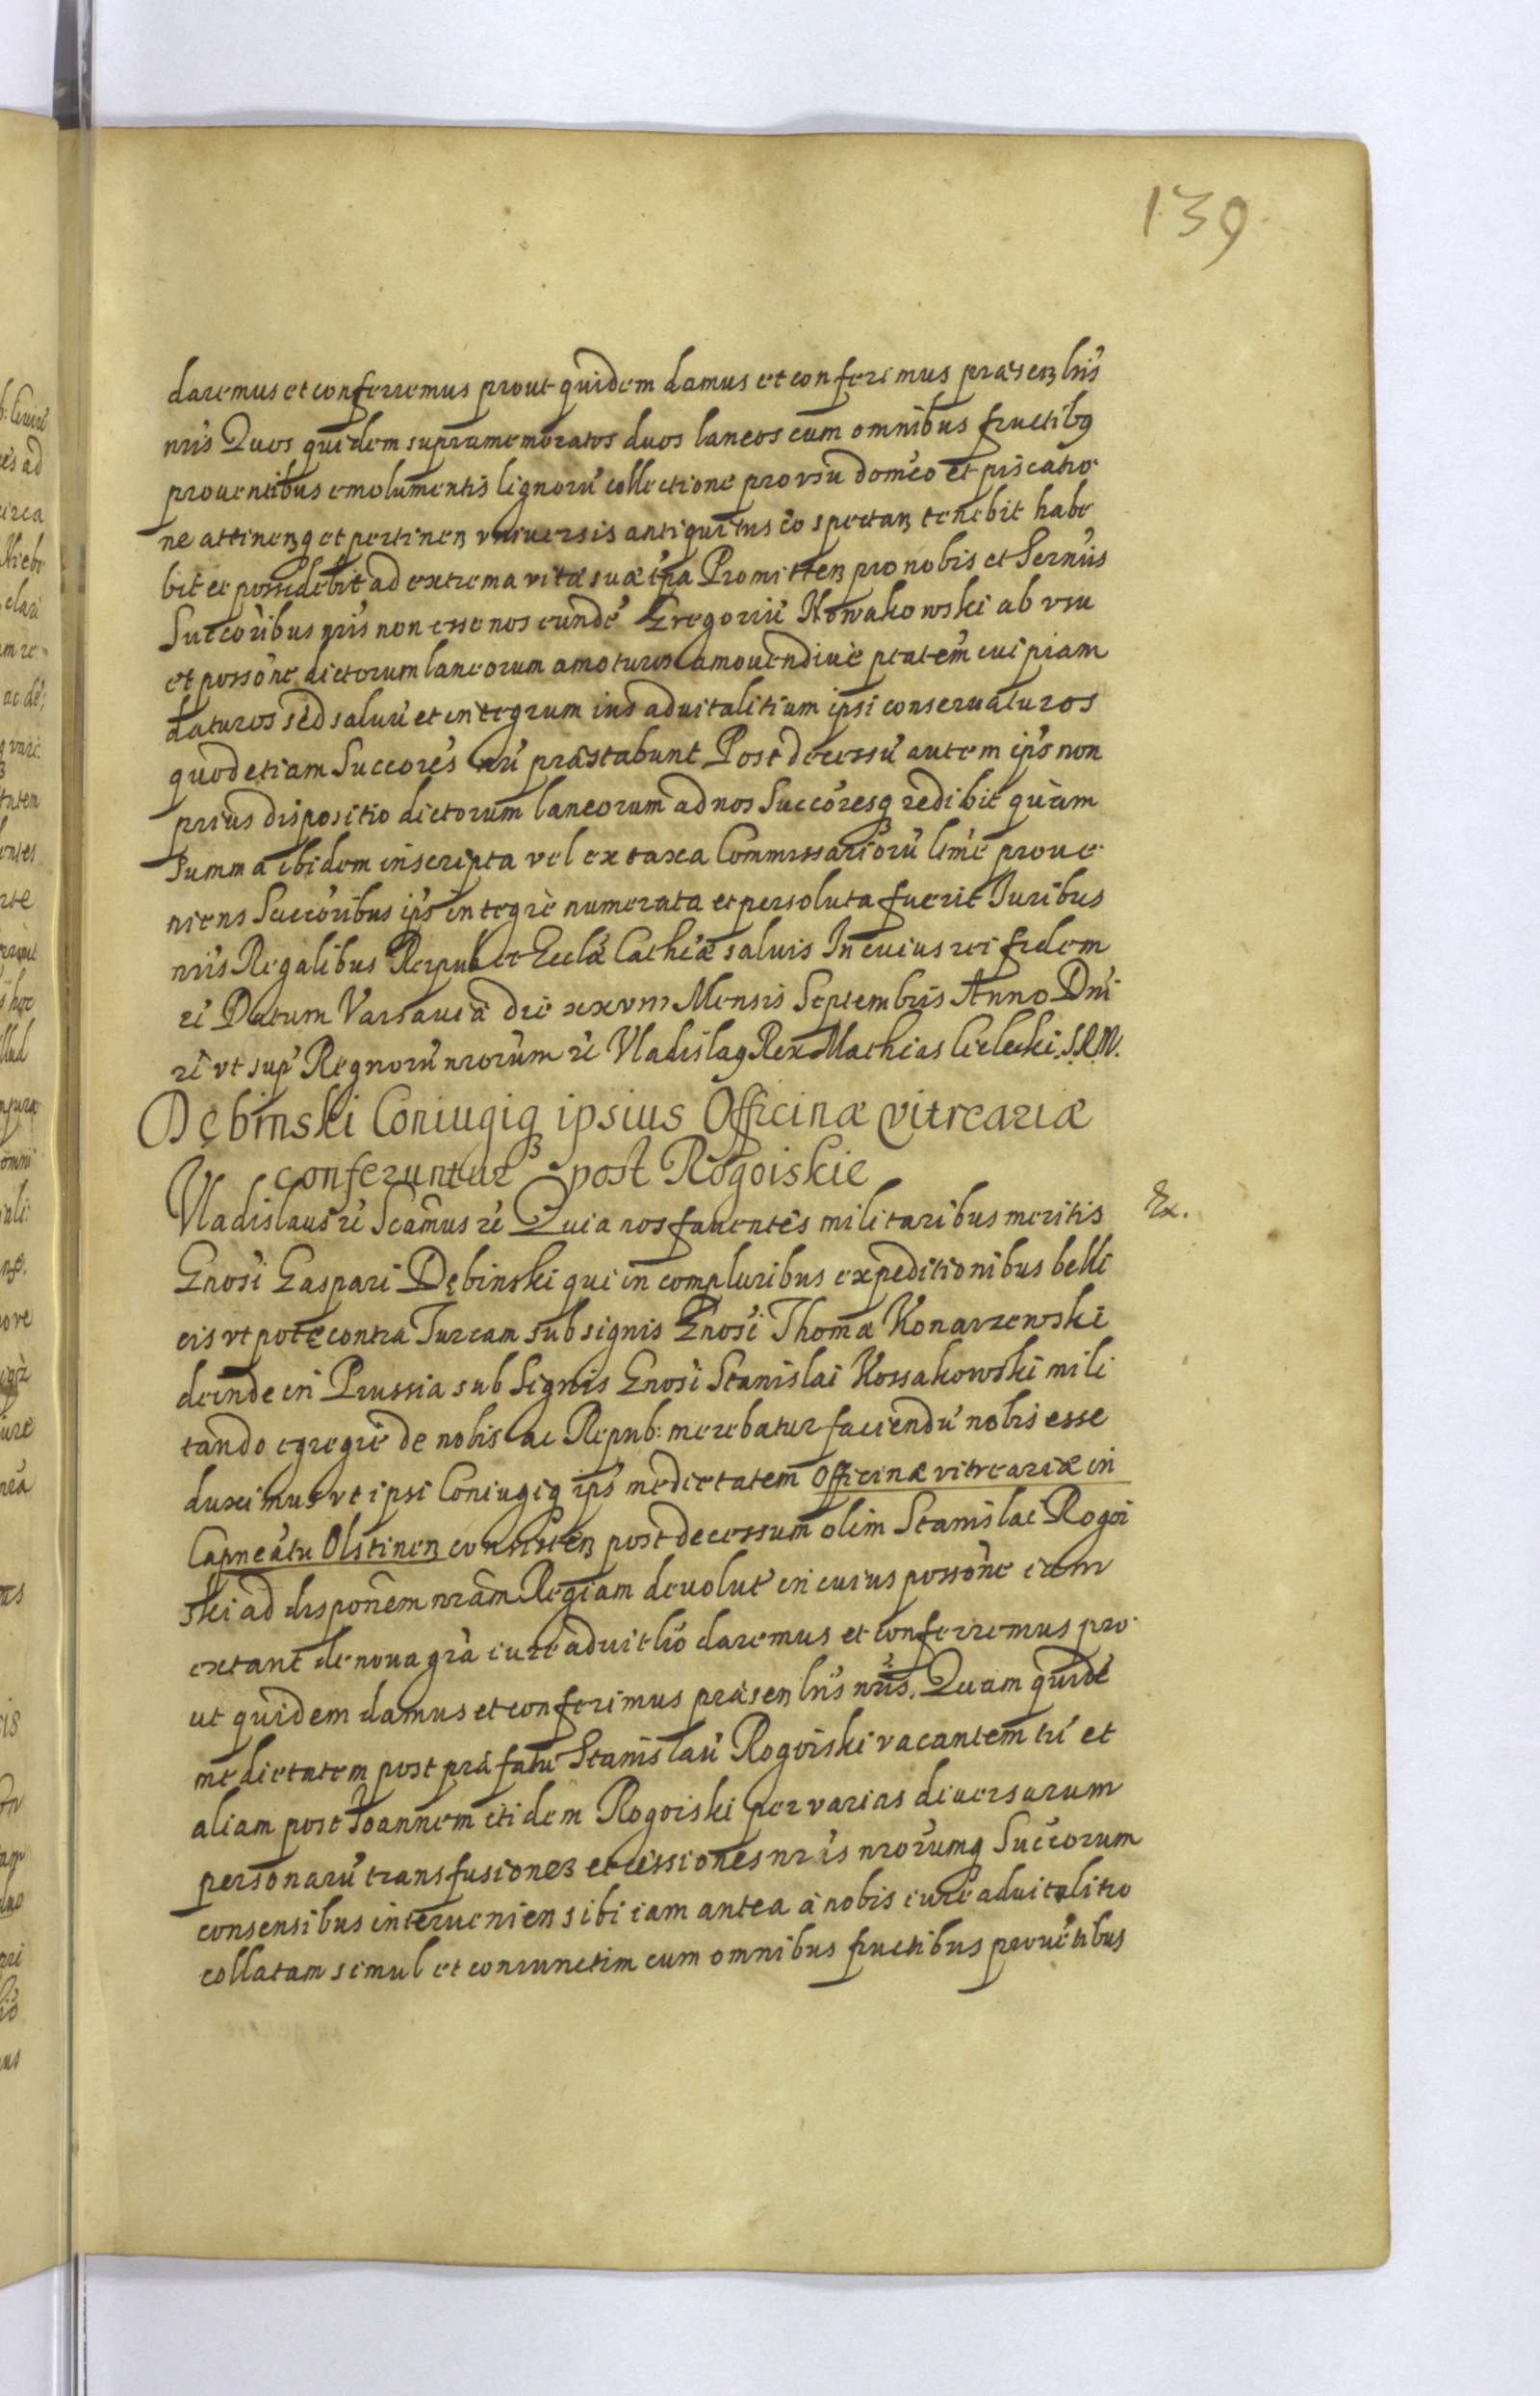 139
daremus et conferremus prout quidem damus et conferimus praesenz lris
nris Quos quidem supramemoratos duos laneos cum omnibus fructibq
prouentibus emolumentis lignorũ collectione pro vsu domeo et piscatio
ne attinenzq et pertinenz vniuersis antiquitus eo spectanz tenebit habe
bit et possidebit ad extrema vitae suae tpa Promittenz pro nobis et Sernis
Succoribus nris non esse nos eunde Gregoriũ Nowakowski ab vsu
et possone dictorum laneorum amoturos amouendiue ptatem cuipiam
daturos sed saluũ et integrum ius aduitalitium ipsi conseruaturos
quod etiam Succores nri praestabunt Post decessũ autem ips non
prius dispositio dictorum laneorum ad nos Succoresq redibit quàm
Summa ibidem inscripta vel ex taxa Commissariorũ lime proue
niens Succoribus ips integrè numerata et persoluta fuerit Iuribus
nris Regalibus Reipub et Eccláe Cathcae saluis In cuius rei fidem
ze Datum Varsauiae die xxvIII Mensis Septembris Anno Dni
ze vt sup Regnorũ nrorum ze Vladislaq Rex Mathias Cielecki S.R.M.
Dębinski Coniugiq ipsius Officinae vitreariae
conferuntur post Rogoiskie
Ex.
Vladislaus ze Scamus ze Quia nos fauentes militaribus meritis
Gnosi Gaspari Dębinski qui in compluribus expeditionibus belli
cis vt pote contra Turcam sub signis Gnosi Thomae Konarzewski
deinde in Prussia sub Signis Gnosi Stanislai Kossakowski mili
tando egregie de nobis ac Repub: merebatur faciendũ nobis esse
duximus vt ipsi Coniugiq ips medietatem Officinae vitreariae in
Capneatu Olstinenz consistenz post decessum olim Stanislai Rogoi
ski ad disponem nram Regiam deuolut in cuius possone iam
extant de noua gra iure aduitlio daremus et conferremus pro
ut quidem damus et conferimus praesenz lris nris. Quam quide
medietatem post praefatũ Stanislaũ Rogoiski vacantem tũ et
aliam post Ioannem itidem Rogoiski per varias diuersarum
personarũ transfusiones et cessiones nris nrorumq Succorum
consensibus interuenien sibi iam antea à nobis iure aduitalitio
collatam simul et coniunctim cum omnibus fructibus prouetibus